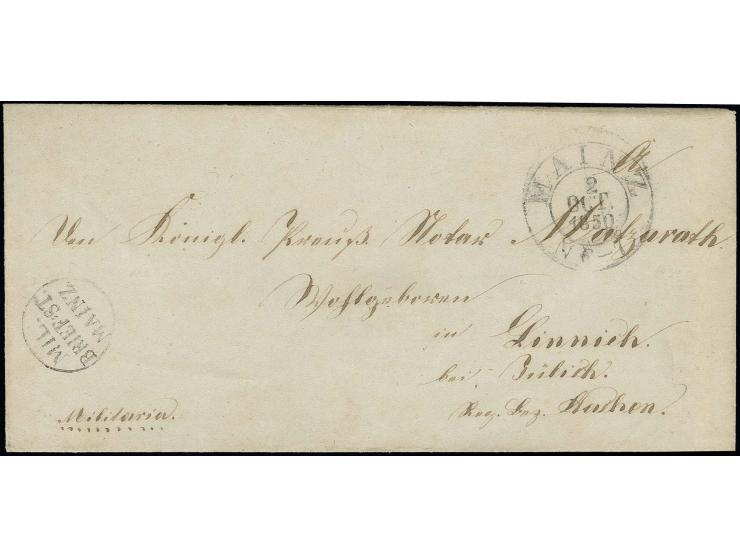 MAINZ
2
OCT.
1850
Den Königl. Preuß. Notar
Wohlgeboren
in Linnich.
bei Jülich.
Reg. Bez. Aachen.
MIL.
BRIEFST.
MAINZ
Militaria.